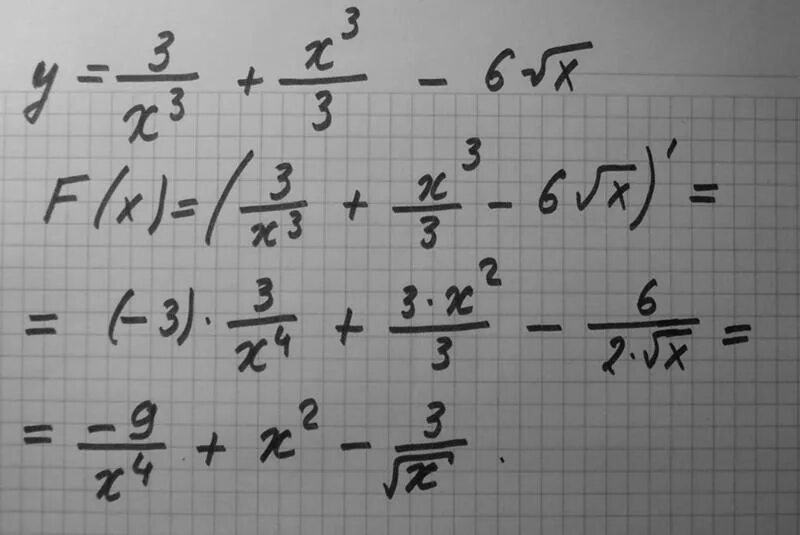 y = 3/x³ + x³/3 - 6√x
F(x) = (3/x³ + x³/3 - 6√x)' =
= (-3) · 3/x⁴ + 3·x²/3 - 6/2·√x =
= -9/x⁴ + x² - 3/√x .